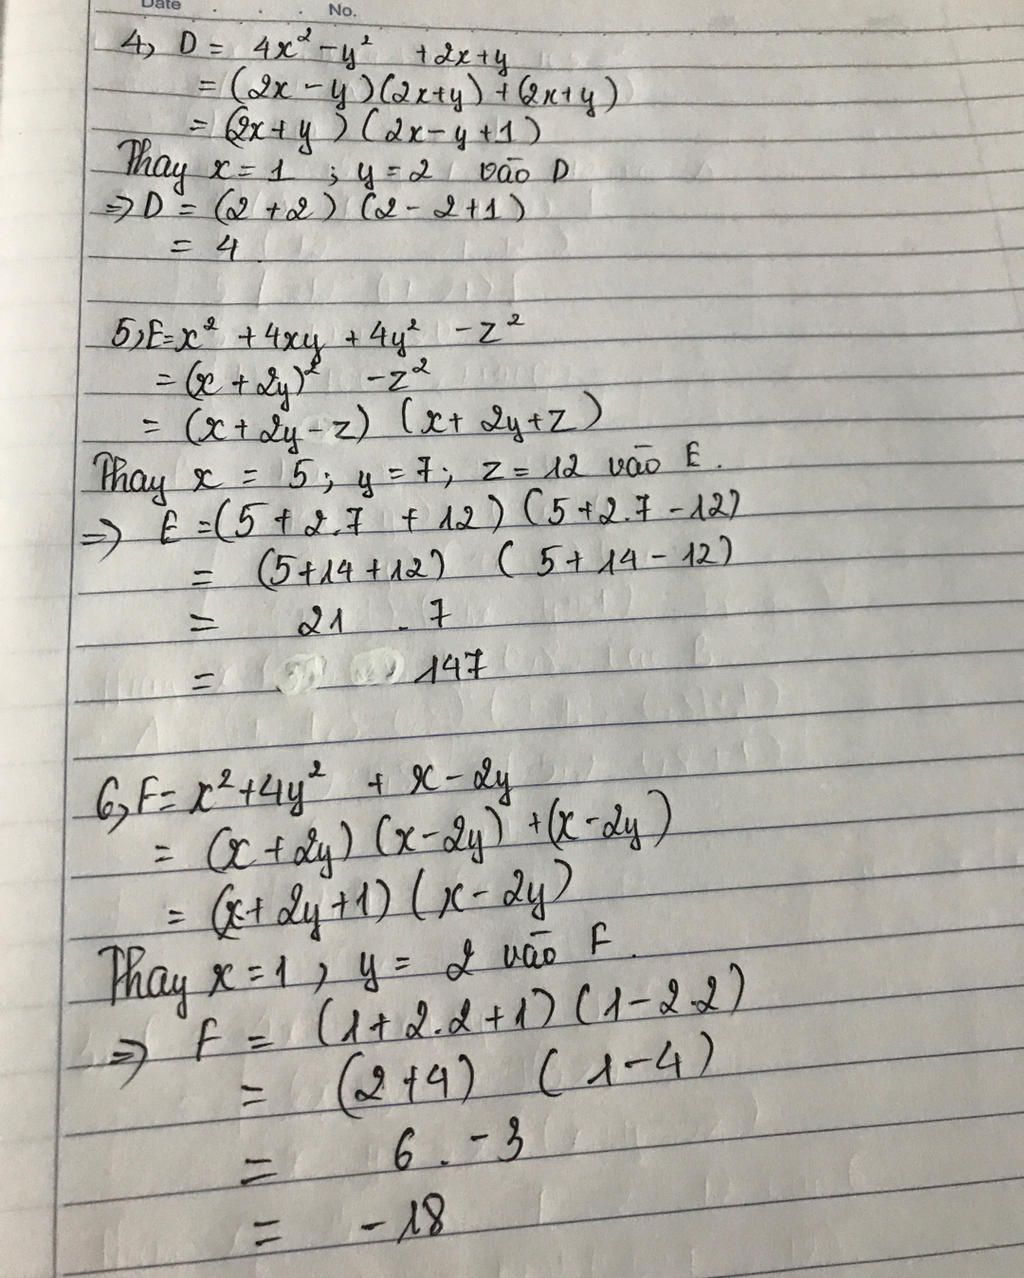 Date . . . No.
4, D = 4x² - y² + 2x + y
= (2x - y)(2x+y) + (2x+y)
= (2x+y)(2x-y+1)
Thay x = 1 ; y = 2 vào D
=> D = (2 + 2) (2 - 2 + 1)
= 4
5, E = x² + 4xy + 4y² - z²
= (x + 2y)² - z²
= (x + 2y - z) (x + 2y + z)
Thay x = 5 ; y = 7 ; z = 12 vào E.
=> E = (5 + 2.7 + 12) (5 + 2.7 - 12)
= (5+14+12) (5 + 14 - 12)
= 21 . 7
= 147
6, F = x² + 4y² + x - 2y
= (x + 2y) (x - 2y) + (x - 2y)
= (x + 2y + 1) (x - 2y)
Thay x = 1 , y = 2 vào F.
=> F = (1 + 2.2 + 1) (1 - 2.2)
= (2 + 4) (1 - 4)
= 6 . -3
= -18